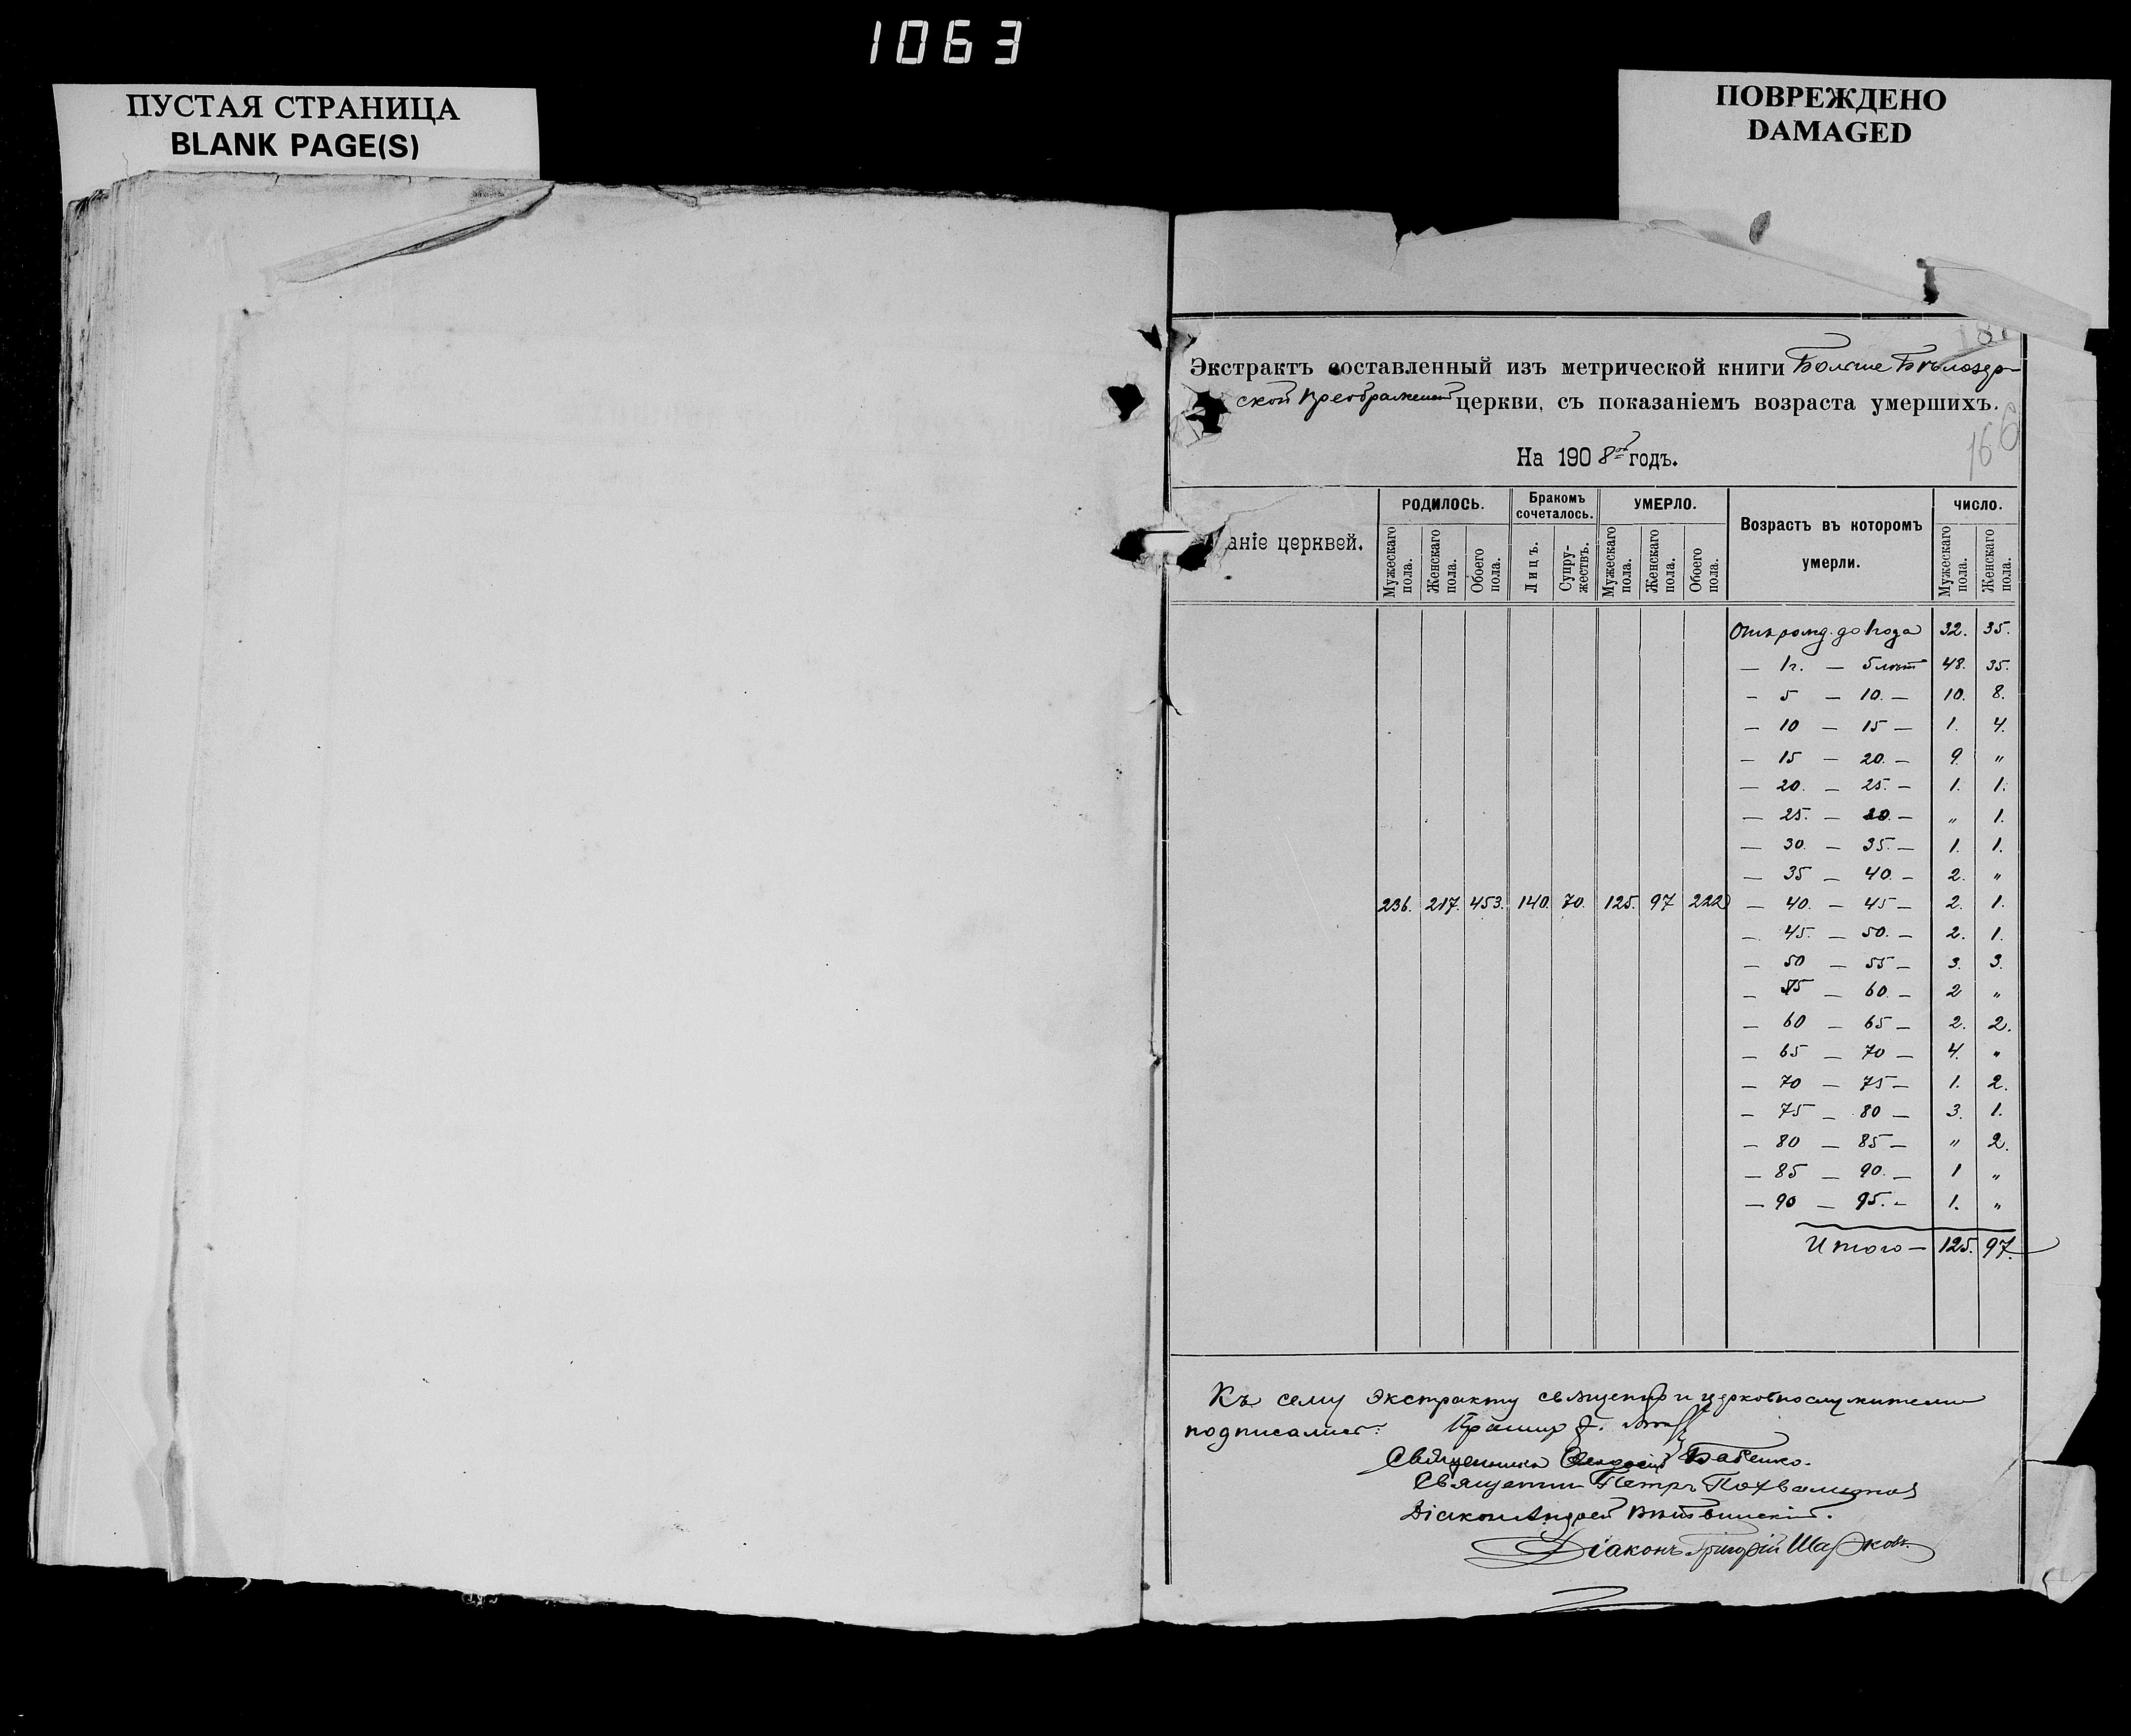 1063
ПУСТАЯ СТРАНИЦА
BLANK PAGE(S)
ПОВРЕЖДЕНО
DAMAGED
Экстрактъ составленный изъ метрической книги Больше Бѣлозер-
ской Преображен церкви, съ показаніемъ возраста умершихъ.
166
На 1908 годъ.
аніе церквей.
РОДИЛОСЬ. Бракомъ сочеталось. УМЕРЛО. Возрастъ въ которомъ умерли. ЧИСЛО.
Мужескаго пола. Женскаго пола. Обоего пола. Лицъ. Супру-жествъ. Мужескаго пола. Женскаго пола. Обоего пола. Мужескаго пола. Женскаго пола.
Отъ рожд. до 1 года 32. 35.
— 1 г. — 5 лѣт 48. 35.
— 5 — 10. — 10. 8.
— 10 — 15 — 1. 4.
— 15 — 20. — 9. "
— 20. — 25. — 1. 1.
— 25. — 30. — " 1.
— 30. — 35. — 1. 1.
— 35 — 40. — 2. "
236. 217. 453. 140. 70. 125. 97 222 — 40. — 45 — 2. 1.
— 45. — 50. — 2. 1.
— 50 — 55 — 3. 3.
— 55 — 60. — 2 "
— 60 — 65 — 2. 2.
— 65 — 70 — 4. "
— 70 — 75 — 1. 2.
— 75 — 80 — 3. 1.
— 80 — 85 — " 2.
— 85 — 90. — 1 "
— 90 — 95. — 1. "
Итого — 125. 97.
Къ сему экстракту священно и церковнослужители
подписались:
Священникъ Бабенко.
Священник Петръ Похвалитов
Діаконъ Андрей
Діаконъ Григорій